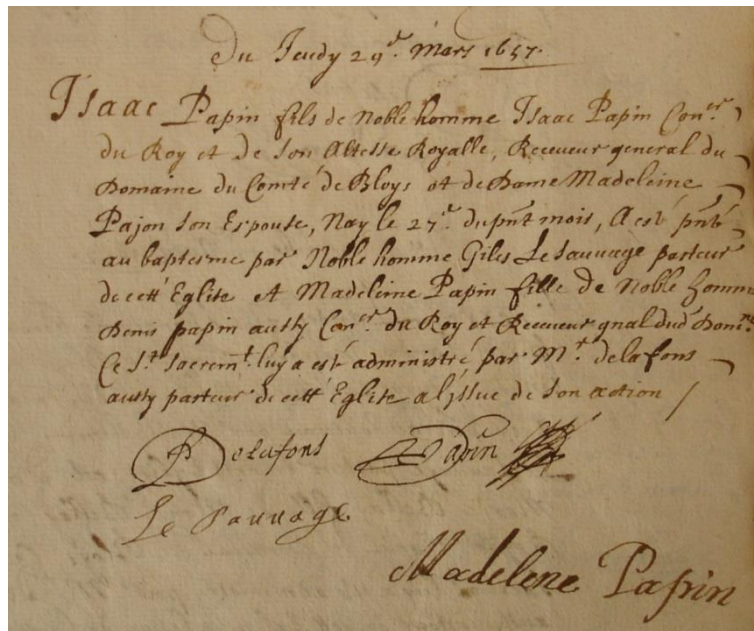 Du Jeudy 29e. Mars 1657.
Isaac Papin fils de Noble homme Isaac Papin Coner.
du Roy et de Son Altesse Royalle, Receveur general du
Domaine du Comté de Bloys et de Dame Madeleine
Pajon Son Espouse, Nay le 27e. du pnt mois, A esté pnté
au baptesme par Noble homme Giles Le Sauvage pasteur
de cette Eglise et Madeleine Papin fille de Noble homme
Denis papin aussy Coner. du Roy et Receveur gnal dud Domne.
Ce St. Sacremt. luy a esté administré par Mr. delafons
aussy pasteur de cette Eglise a lissue de Son action /
Delafons Papin
Le Sauvage
Madelene Papin